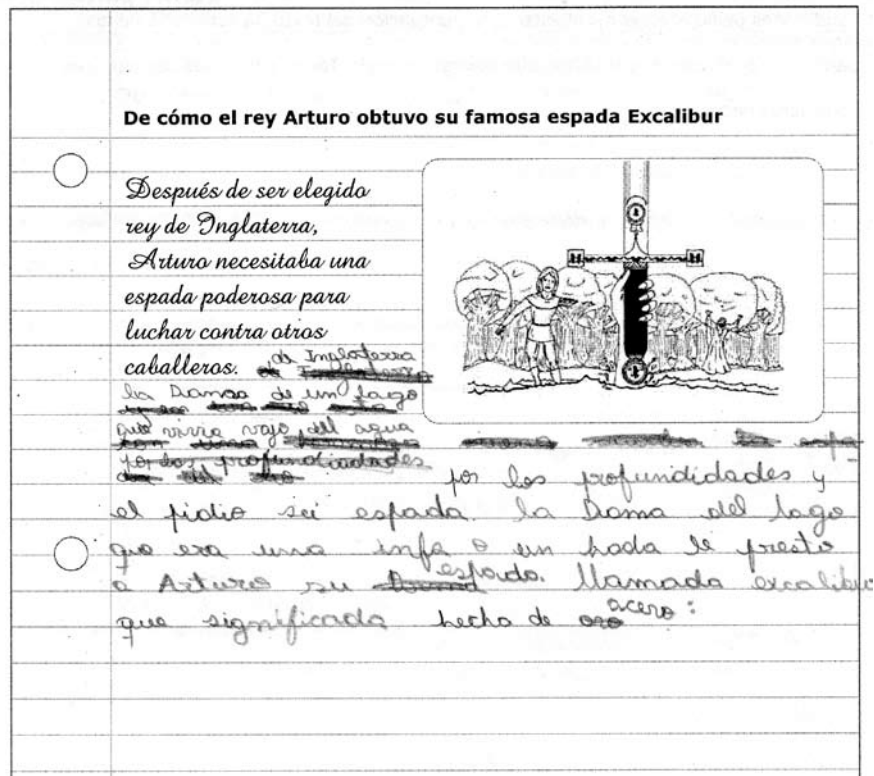 De cómo el rey Arturo obtuvo su famosa espada Excalibur
Después de ser elegido
rey de Inglaterra,
Arturo necesitaba una
espada poderosa para
luchar contra otros
caballeros. de Inglaterra
la Dama de un lago
que vivia vajo del agua
por las profundidades
por las profundidades y
el pidio sei espada la Dama del lago
que era una infa o un hada le presto
a Arturo su espada. llamada excalibur
que significada hecha de acero: